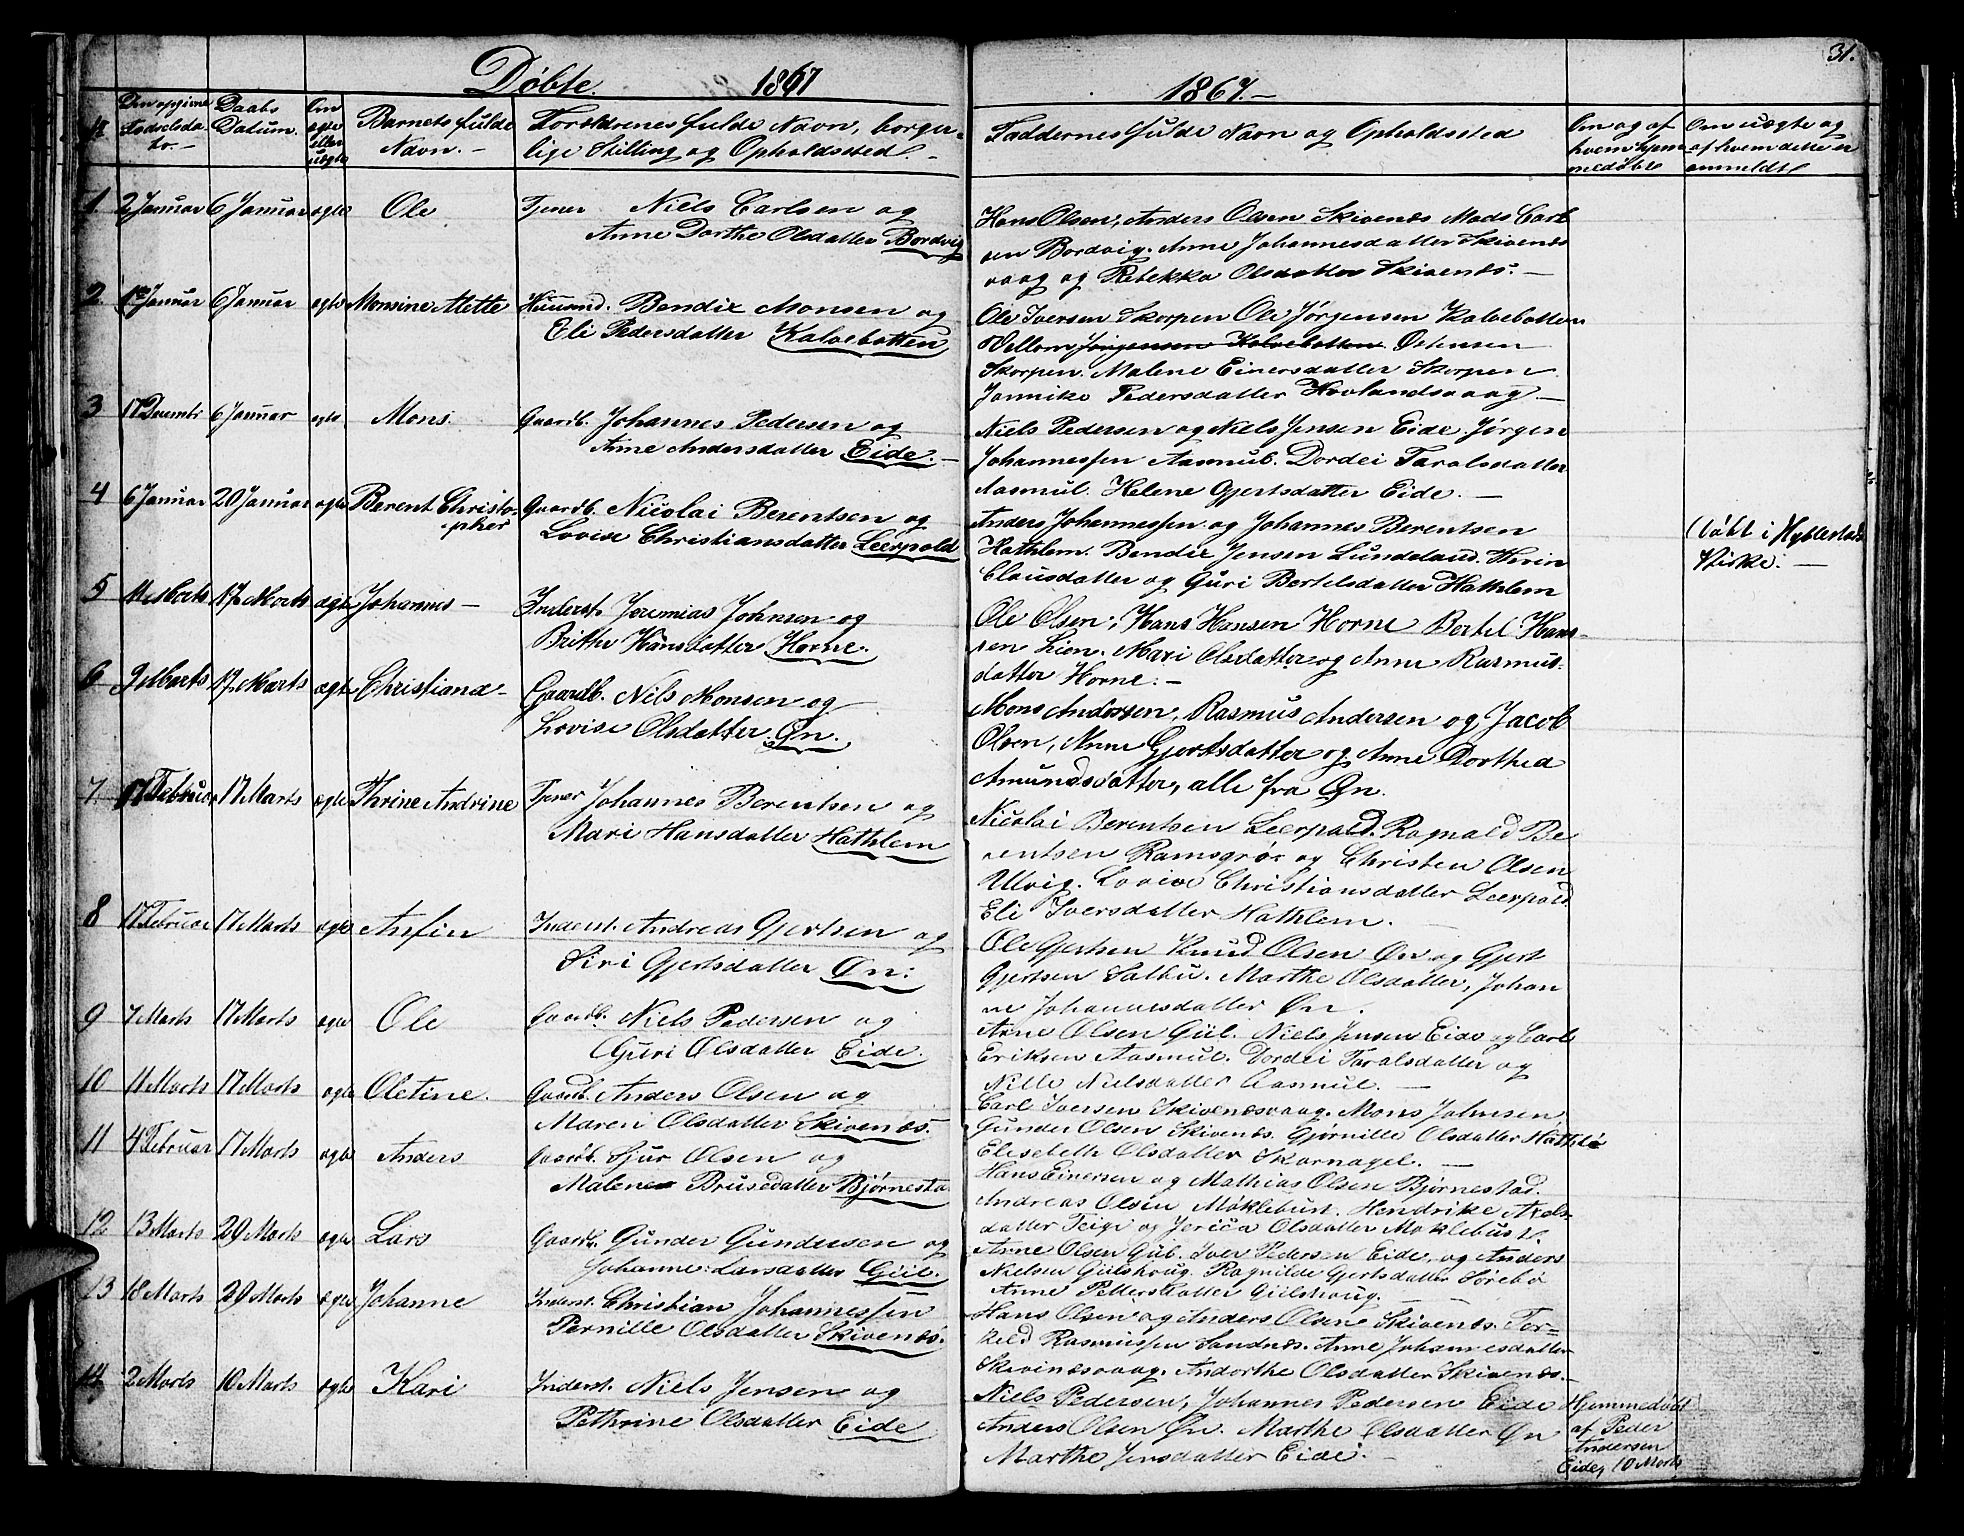 31.
Døbte. 1867
1867.-
No
Den opgivne
Fødselsda-
to.-
Daabs
Datum.
Om
ægte
eller
uægte
Barnets fulde
Navn.-
Forældrenes fulde Navn, borger-
lige Stilling og Opholdssted.-
Faddernes fulde Navn og Opholdssted
Om og af
hvem hjem-
medøbte
Om uægte og
af hvem dette er
anmeldt
1. 2 Januar 6 Januar ægte Ole Tjener Niels Carlsen og
Anne Dorthe Olsdatter Bordvig
Hans Olsen, Anders Olsen Skivenæs Mads Carl
sen Bordvig. Anne Johannesdatter Skivenæs
vaag og Rebekka Olsdatter Skivenæs.-
2. 1 Januar 6 Januar ægte Monsine Mette Huusmd. Bendix Monsen og
Eli Pedersdatter Kalvebotten
Ole Iversen Skorpen Ole Jørgensen Kalvebotten
Villom Jørgensen Kalvebotten Østensen
Skorpen. Malene Einersdatter Skorpen.
Jannike Pedersdatter Hovlandsvaag-
3 17 Decembr 6 Januar ægte Mons. Gaardb. Johannes Pedersen og
Anne Andersdatter Eide.-
Niels Pedersen og Niels Jensen Eide. Jørgen
Johannessen Aasmul. Dordei Taralsdatter
Aasmul. Helene Gjertsdatter Eide.-
4 6 Januar 20 Januar ægte Berent Christo-
pher Gaardb. Nicolai Berentsen og
Lovise Christiansdatter Leerpold
Anders Johannessen og Johannes Berentsen
Hathlem. Bendix Jensen Sundeland.
Clausdatter og Guri Bertelsdatter Hathlem
(døbt i Hyllestad
Kirke.-
5 11 Marts 17 Marts ægte Johannes- Inderst. Jeremias Johnsen og
Brithe Hansdatter Horne.
Ole Olsen, Hans Hansen Horne Bertel Hans-
sen Lien. Mari Olsdatter og Anne Rasmus-
datter Horne.-
6 9 Marts 17 Marts ægte Christiane- Gaardb. Niels Monsen og
Lovise Olsdatter Øn.
Mons Andersen, Rasmus Andersen og Jacob
Olsen, Anne Gjertsdatter og Anne Dorthea
Amundsdatter, alle fra Øn.
7 17 Februar 17 Marts ægte Thrine Andrine Tjener Johannes Berentsen og
Mari Hansdatter Hathlem
Nicolai Berentsen Leerpold. Ragnald Be
rentsen Ramsgrør og Christen Olsen
Ulvig. Lovise Christiansdatter Leerpold
Eli Iversdatter Hathlem.
8 17 Februar 17 Marts ægte Anfin Inderst. Andreas Gjertsen og
Siri Gjertsdatter Øn.
Ole Gjertsen Knud Olsen Øn og Gjert
Gjertsen Salbu. Marthe Olsdatter, Johan
ne Johannesdatter Øn.
9 7 Marts 17 Marts ægte Ole Gaardb. Niels Pedersen og
Guri Olsdatter Eide.
Arne Olsen Gül. Niels Jensen Eide og Carl
Eriksen Aasmul. Dordei Taralsdatter og
Nille Nielsdatter Aasmul.-
10 11 Marts 17 Marts ægte Oletine. Gaardb. Anders Olsen og
Maren Olsdatter Skivenæs.
Carl Iversen Skivenæsvaag. Mons Johnsen
Gunder Olsen Skivenæs. Gjørnille Olsdatter Hathle
Elisebeth Olsdatter Skarnagel.-
11 4 Februar 17 Marts ægte Anders Gaardb. Sjur Olsen og
Malene Brusedatter Bjørnesta
Hans Einersen og Mathias Olsen Bjørnestad.
Andreas Olsen Møklebust. Hendrike Axels-
datter Teige og Jerica Olsdatter Møklebust.
12 13 Marts 29 Marts ægte Lars Gaardb. Gunder Gundersen og
Johanne Larsdatter Gül.
Arne Olsen Gül. Iver Pedersen Eide, og Anders
Nielsen Gülshoug. Ragnilde Gjertsdatter Sørebø
Anne Pettersdatter Gülshoug.
13 18 Marts 29 Marts ægte Johanne Inderst. Christian Johannessen
Pernille Olsdatter Skivenæs.
Hans Olsen og Anders Olsen Skivenæs. Tor-
keld Rasmussen Sandnes. Anne Johannesdatter
Skivenæsvaag. Andorthe Olsdatter Skivenæs.-
14 2 Marts 10 Marts ægte Kari Inderst. Niels Jensen og
Pethrine Olsdatter Eide
Niels Pedersen, Johannes Pedersen Eide
Anders Olsen Øn. Marthe Olsdatter Øn
Marthe Jensdatter Eide.-
Hjemmedøbt
af Peder
Andersen
Eide, 10 Marts